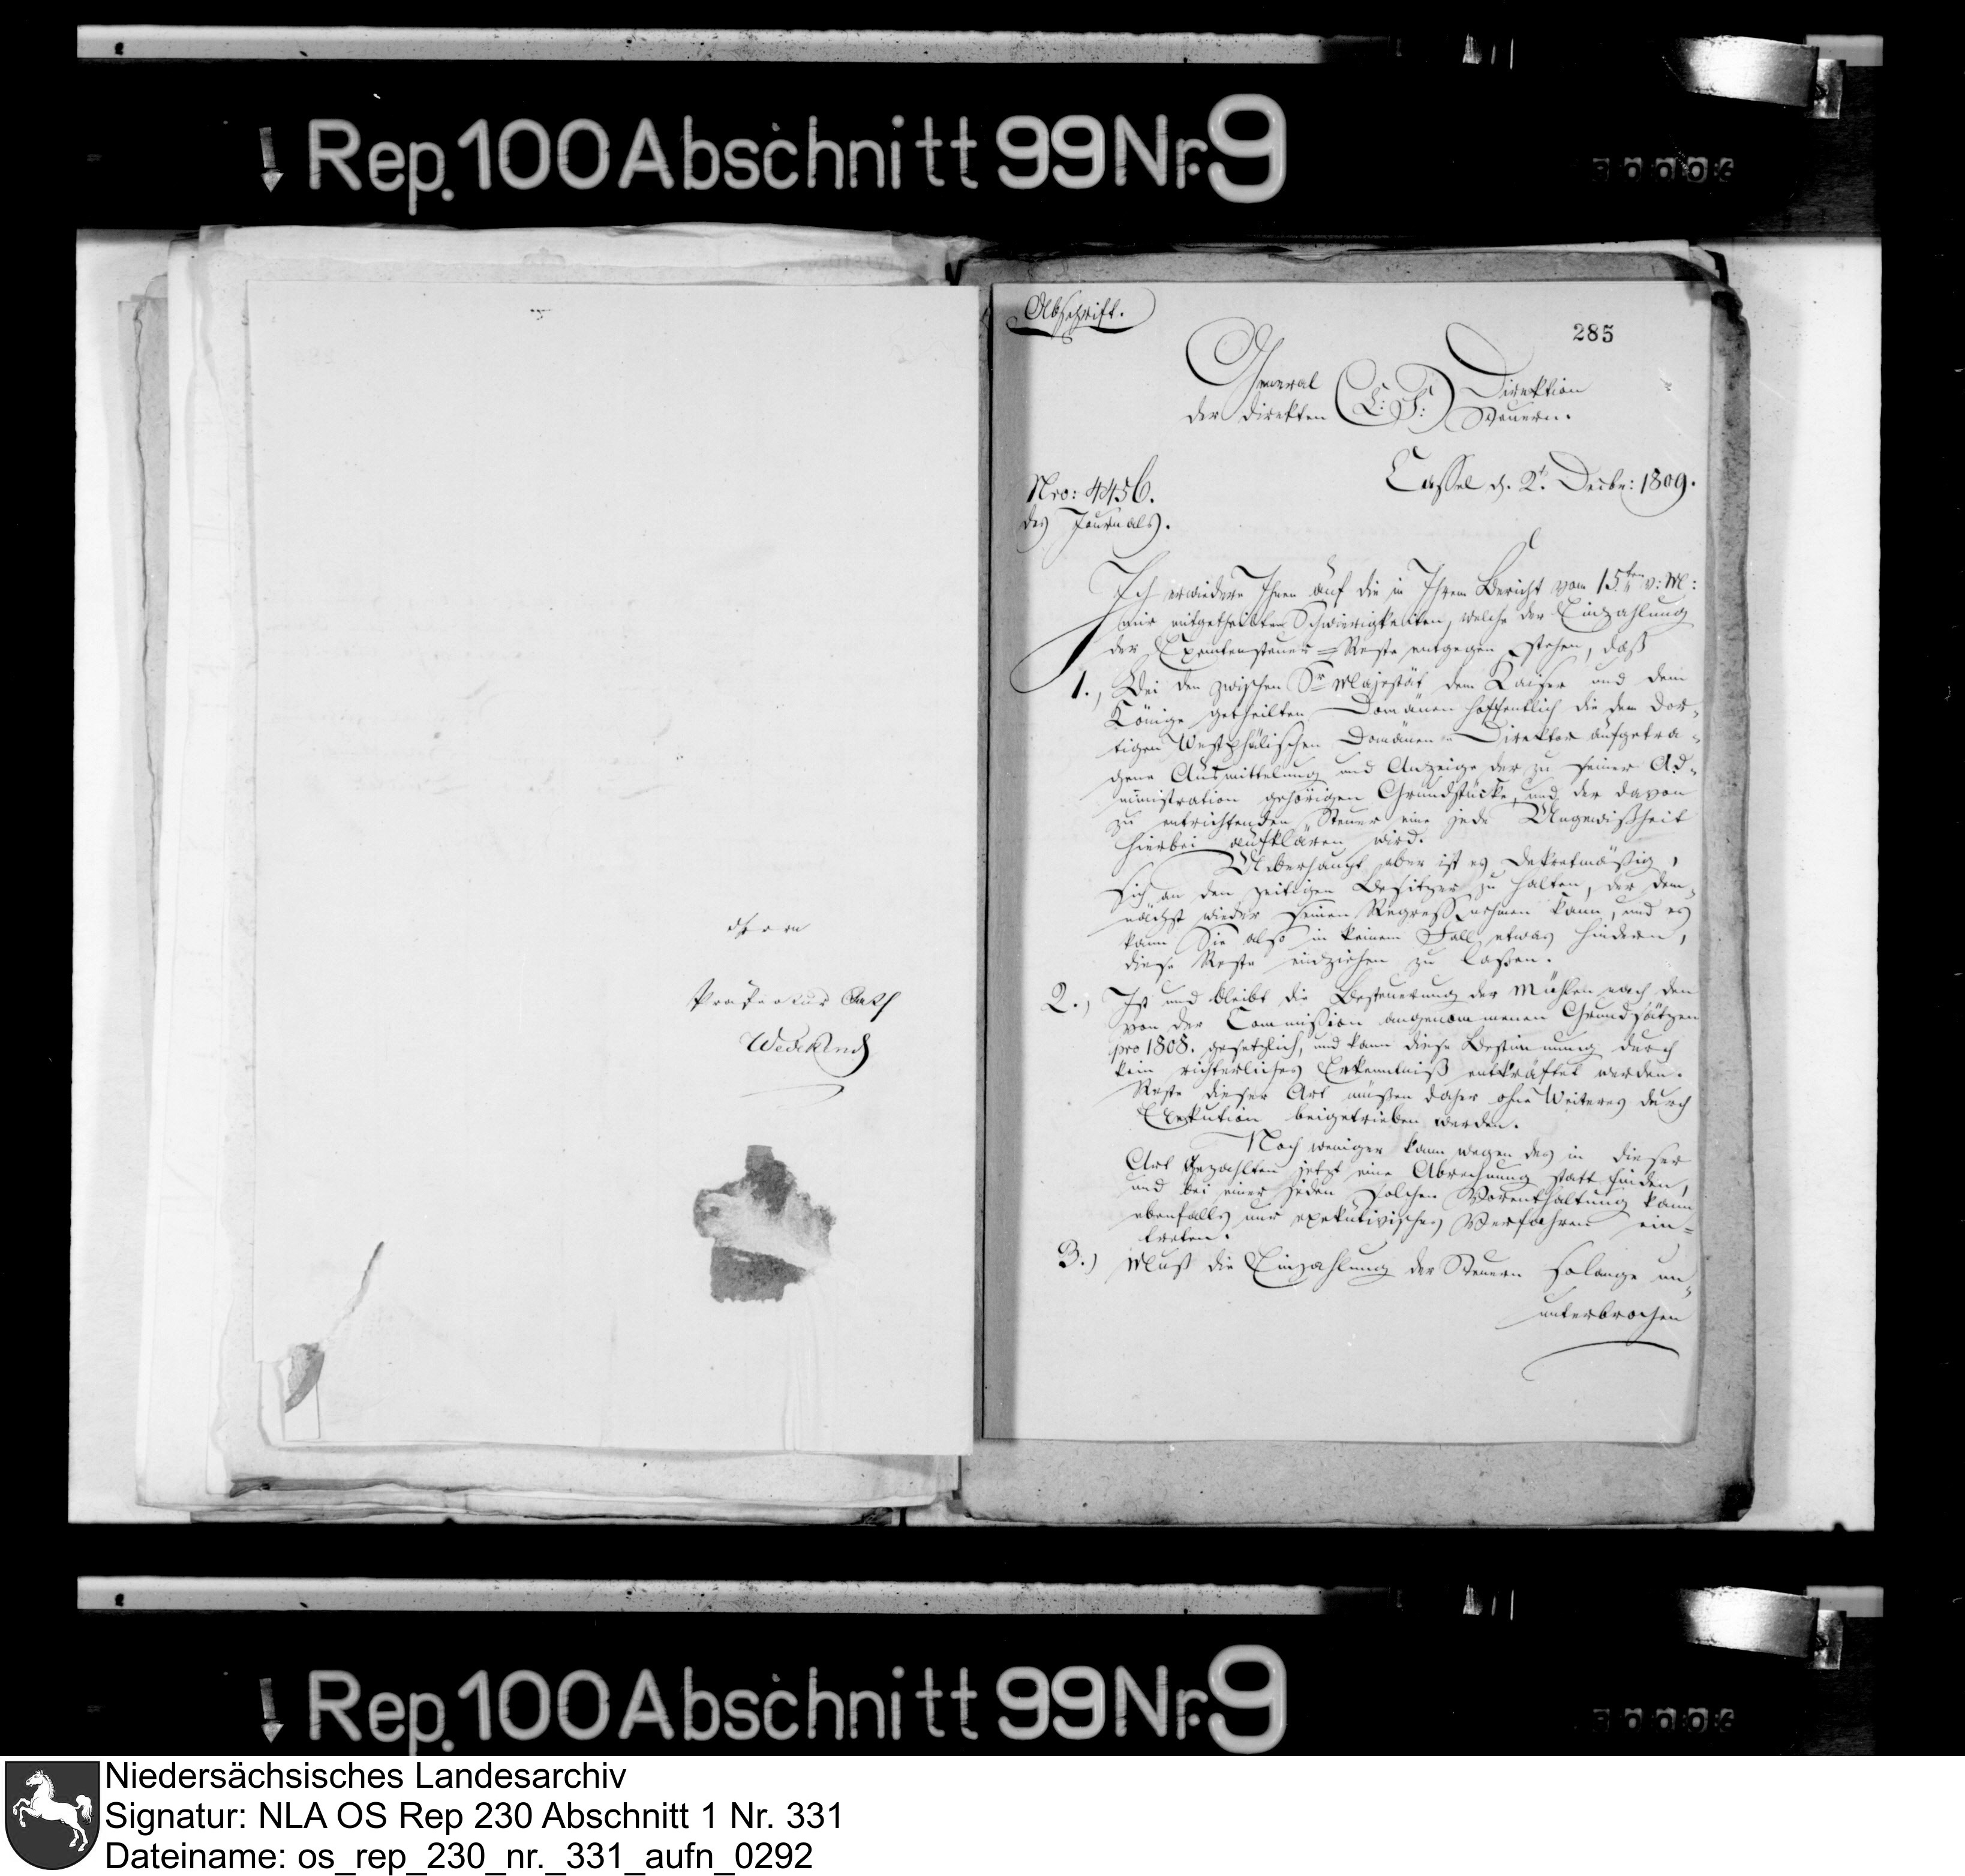 Rep. 100 Abschnitt 99 Nr. 9
Herrn
Präfectur Rath
Wedekind
Abschrift.
285
General Direktion
der direkten (L: S:) Steuern.
Cassel d. 2t. Decbr: 1809.
Nro: 4456.
des Journals.
Ich erwiedere Ihnen auf die in Ihrem Bericht vom 15ten v: M:
mir mitgetheilten Schwierigkeiten, welche der Einzahlung
der Exemtensteuer-Reste entgegen stehen, daß
1., Bei den zwischen Sr Majestät dem Kaiser und dem
Könige getheilten Domänen hoffentlich die dem dor-
tigen Westphälischen Domänen-Direktor aufgetra-
gene Ausmittelung und Anzeige der zu seiner Ad-
ministration gehörigen Grundstücke, und der davon
zu entrichtenden Steuer eine jede Ungewißheit
hierbei aufklären wird.
Ueberhaupt aber ist es dekretmäßig,
sich an den zeitigen Besitzer zu halten, der dem-
nächst wieder seinen Regreß nehmen kann, und es
kann Sie also in keinem Fall etwas hindern,
diese Reste einziehen zu laßen.
2., Ist und bleibt die Besteuerung der Mühlen nach den
von der Commißion angenommenen Grundsätzen
pro 1808. gesetzlich, und kann diese Bestimmung durch
kein richterliches Erkenntniß entkräftet werden.
Reste dieser Art müßen daher ohne Weiteres durch
Exekution beigetrieben werden.
Noch weniger kann wegen des in dieser
Art Gezahlten jetzt eine Abrechnung statt finden,
und bei einer jeden solchen Vorenthaltung kann
ebenfalls nur exekutivisches Verfahren ein-
treten.
3.) Muß die Einzahlung der Steuern solange un-
unterbrochen
Rep. 100 Abschnitt 99 Nr. 9
Niedersächsisches Landesarchiv
Signatur: NLA OS Rep 230 Abschnitt 1 Nr. 331
Dateiname: os_rep_230_nr._331_aufn_0292